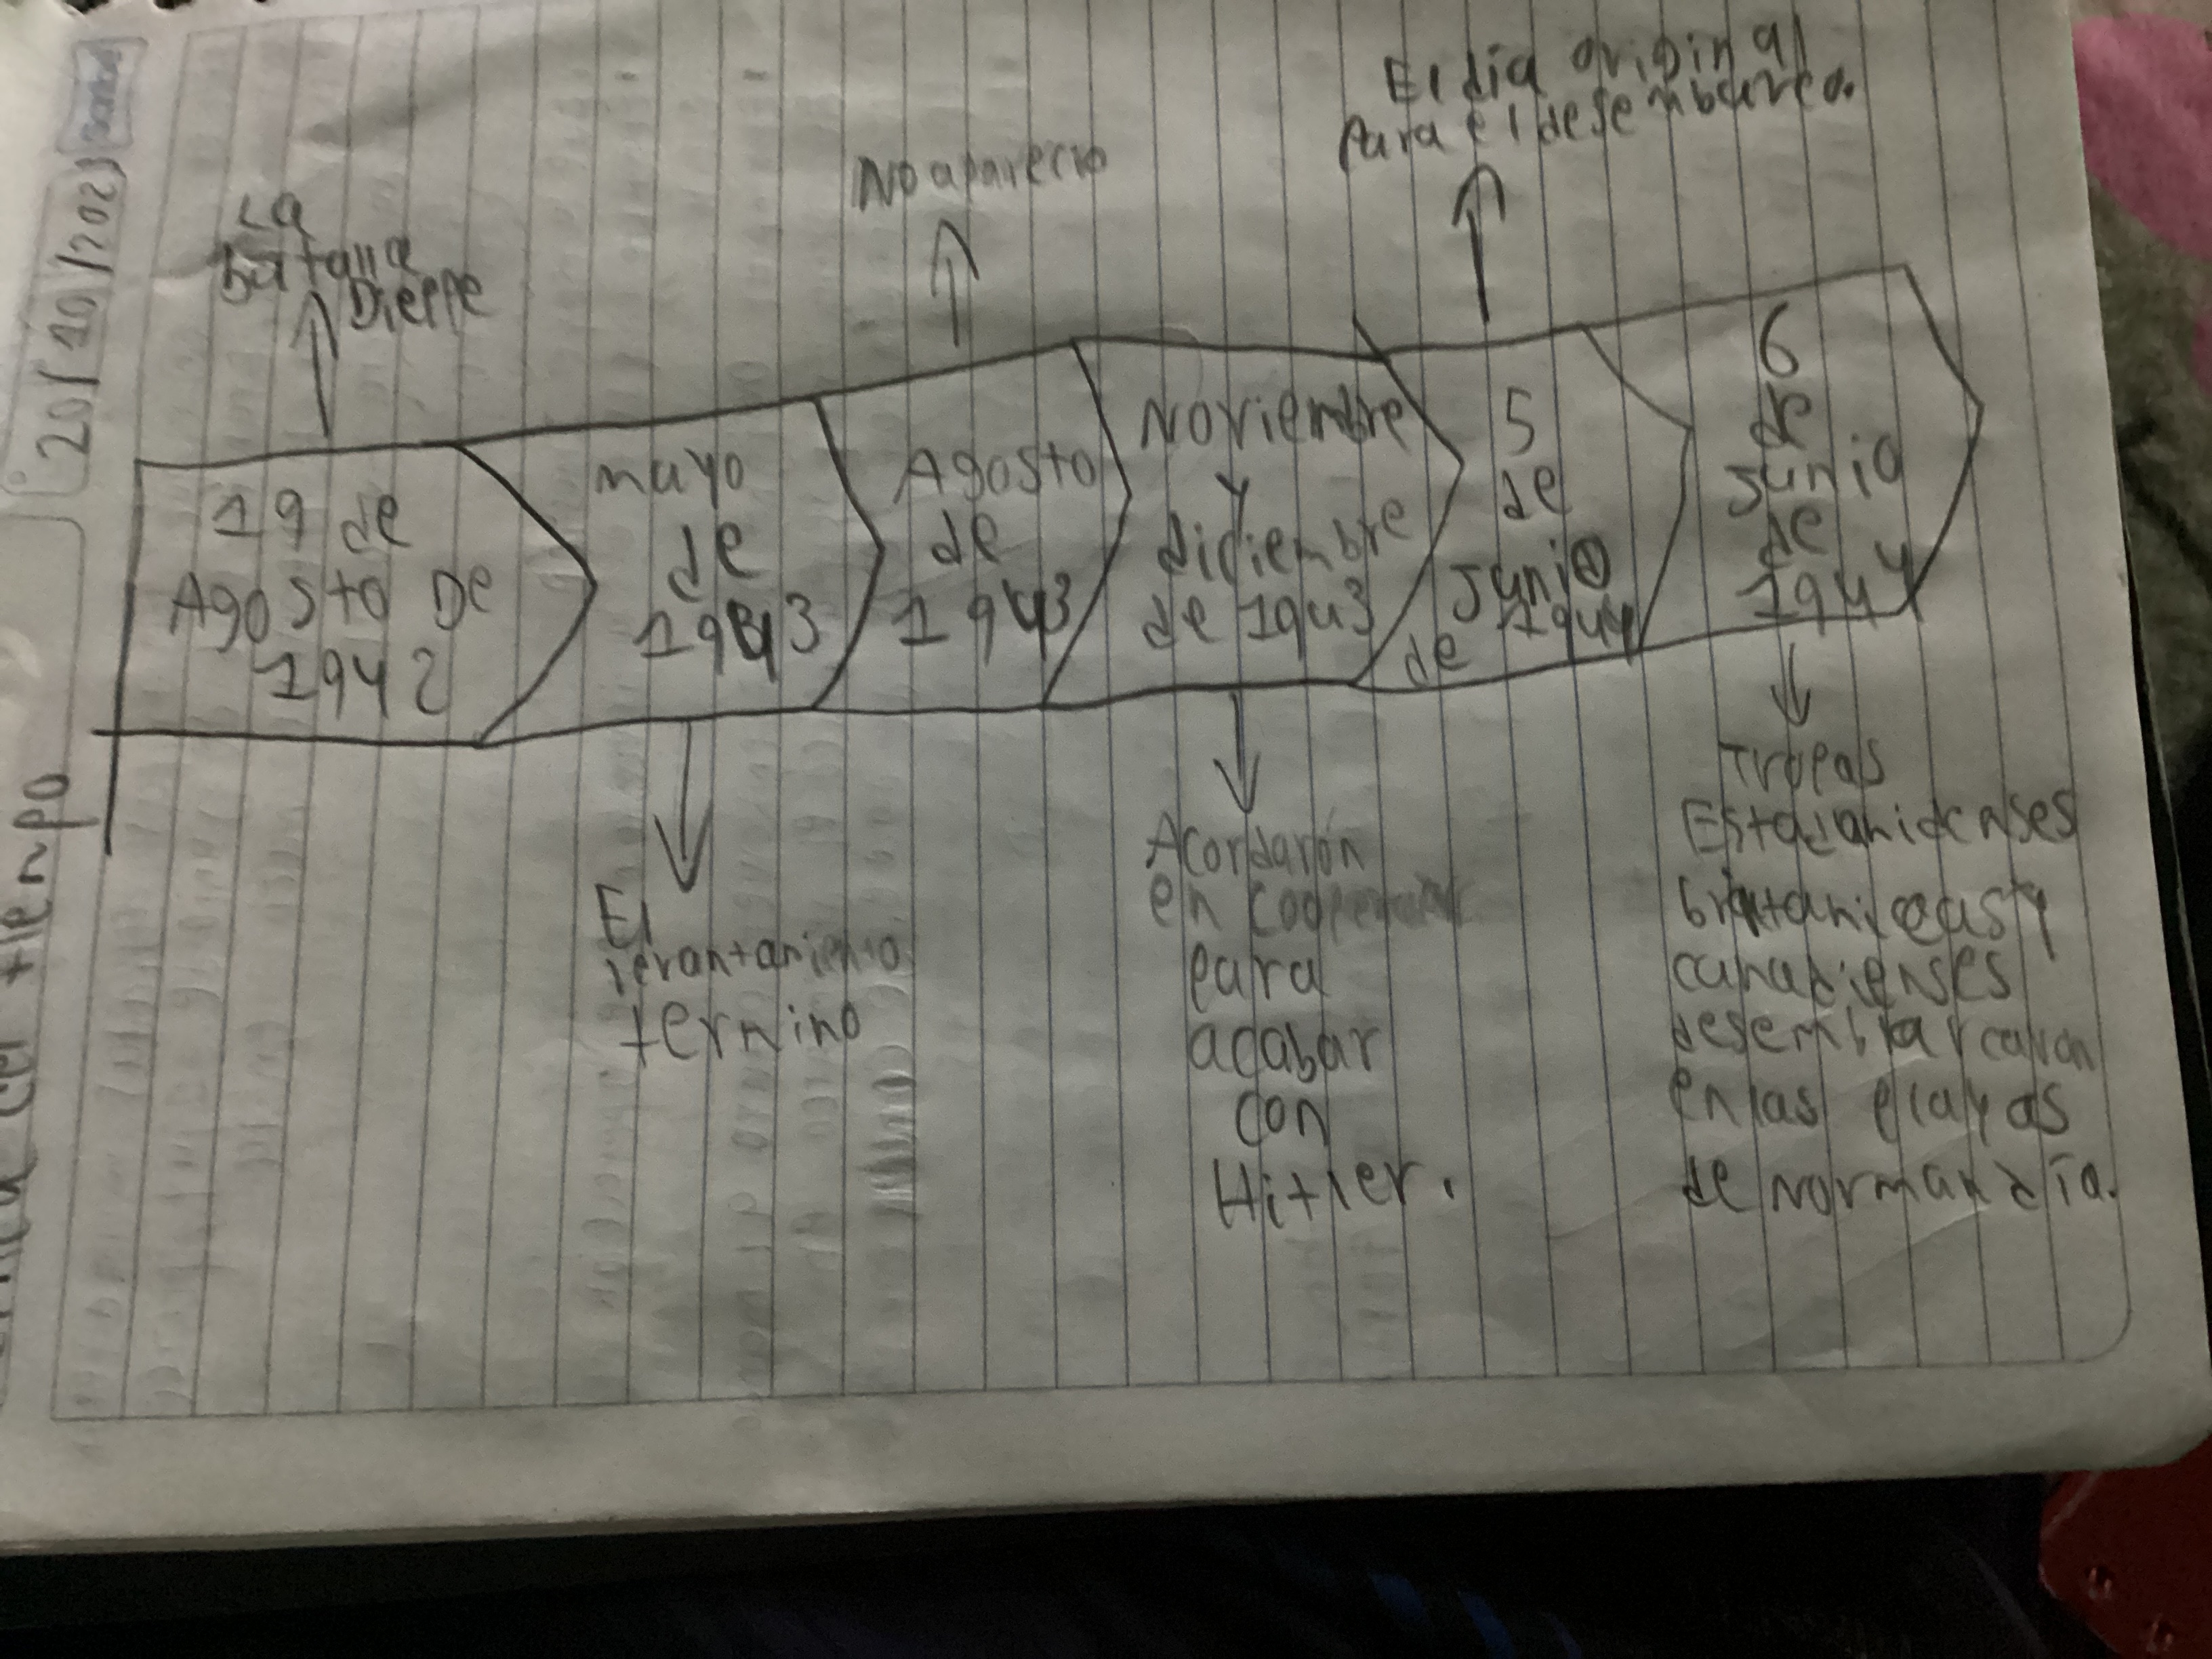 20/10/202
La
batalla
Dieppe
No aparecio
El día original
Para el desembarco.
19 de
Agosto De
1942
mayo
de
1943
Agosto
de
1943
Noviembre
y
diciembre
de 1943
5
de
Junio
de 1944
6
de
Junio
de
1944
El
levantamiento
termino
Acordarón
en
para
acabar
con
Hitler.
Tropas
Estadanidenses
britanicas y
canadienses
desembarcaron
en las playas
de Normandía.
tienpo